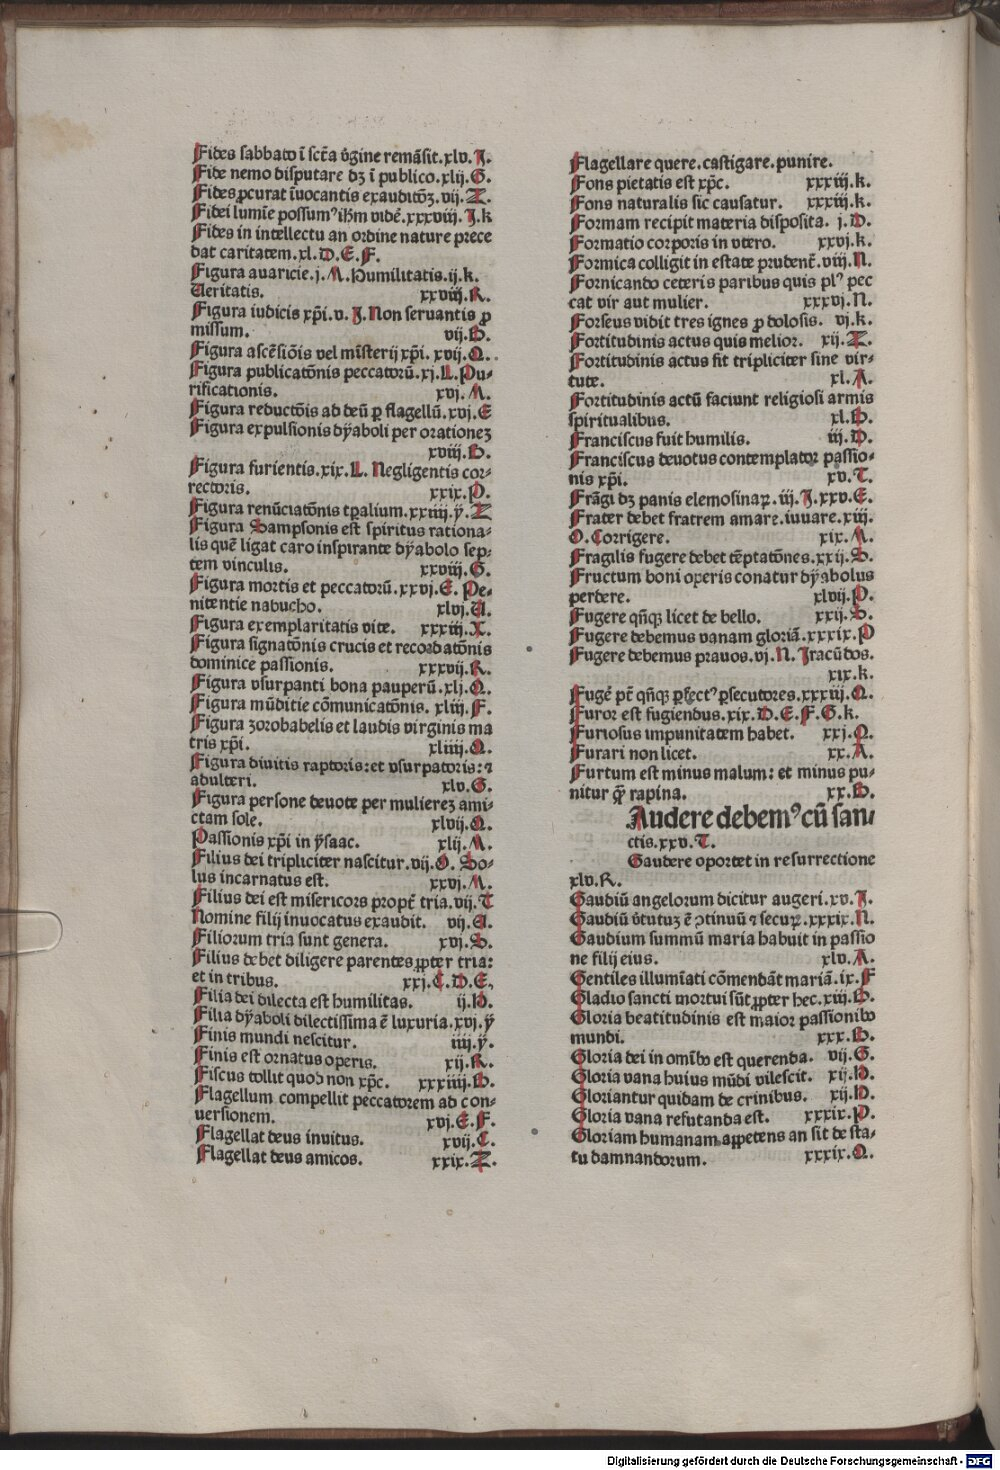 Fides sabbato ī sct̄a v̄gine remāsit.xlv.J.
Fide nemo disputare dꝫ ī publico.xlij.G.
Fides ꝓcurat īuocantis exauditōꝫ.vij.Z.
Fidei lumīe possumꝰ ih̄m vidē.xxxviij.J.k
Fides in intellectu an ordine nature prece
dat caritatem.xl.D.E.F.
Figura auaricie.j.M.Humilitatis.ij.k.
Veritatis. xxviij.R.
Figura iudicis xp̄i.v.J.Non seruantis ꝓ
missum. vij.B.
Figura ascēsiōis vel mīsterij xp̄i. xvij.Q.
Figura publicatōnis peccatorū.xj.L.Pu-
rificationis. xvj.M.
Figura reductōis ad deū ꝑ flagellū.xvj.E
Figura expulsionis dÿaboli per orationeꝫ
xviij.B.
Figura furientis.xix.L. Negligentis cor-
rectoris. xxix.P.
Figura renūciatōnis tꝑalium.xxiiij.ÿ.Z
Figura Sampsonis est spiritus rationa-
lis quē ligat caro inspirante dÿabolo sep-
tem vinculis. xxviij.G.
Figura mortis et peccatorū.xxvj.E. Pe-
nitentie nabucho. xlvj.V.
Figura exemplaritatis vite. xxxiij.X.
Figura signatōnis crucis et recordatōnis
dominice passionis. xxxvij.R.
Figura vsurpanti bona pauperū.xlj.Q.
Figura mūditie cōmunicatōnis. xliij.F.
Figura zorobabelis et laudis virginis ma
tris xp̄i. xliiij.Q.
Figura diuitis raptoris:et vsurpatoris:⁊
adulteri. xlv.G.
Figura persone deuote per muliereꝫ ami-
ctam sole. xlvij.Q.
Passionis xp̄i in ÿsaac. xlij.M.
Filius dei tripliciter nascitur.vij.O. So-
lus incarnatus est. xxvj.M.
Filius dei est misericors propt̄ tria.vij.T
Nomine filij inuocatus exaudit. vij.V.
Filiorum tria sunt genera. xvj.S.
Filius debet diligere parentes ꝓpter tria:
et in tribus. xxj.C.D.E.
Filia dei dilecta est humilitas. ij.H.
Filia dÿaboli dilectissima ē luxuria.xvj.ÿ
Finis mundi nescitur. iiij.ÿ.
Finis est ornatus operis. xij.R.
Fiscus tollit quod non xp̄c. xxxiiij.B.
Flagellum compellit peccatorem ad con-
uersionem. xvj.E.F.
Flagellat deus inuitus. xvij.C.
Flagellat deus amicos. xxix.Z.
Flagellare quere.castigare.punire.
Fons pietatis est xp̄c. xxxiij.k.
Fons naturalis sic causatur. xxxiij.k.
Formam recipit materia disposita. j.D.
Formatio corporis in vtero. xxvj.k.
Formica colligit in estate prudent̄.viij.N.
Fornicando ceteris paribus quis plꝰ pec
cat vir aut mulier. xxxvj.N.
Forseus vidit tres ignes ꝓ dolosis. vj.k.
Fortitudinis actus quis melior. xij.Z.
Fortitudinis actus fit tripliciter sine vir-
tute. xl.A.
Fortitudinis actū faciunt religiosi armis
spiritualibus. xl.B.
Franciscus fuit humilis. iij.D.
Franciscus deuotus contemplator passio-
nis xp̄i. xv.T.
Frāgi dꝫ panis elemosinaꝝ.iij.J.xxv.E.
Frater debet fratrem amare.iuuare.xiij.
O.Corrigere. xix.M.
Fragilis fugere debet tēptatōnes.xxij.S.
Fructum boni operis conatur dÿabolus
perdere. xlvij.P.
Fugere qn̄qꝫ licet de bello. xxij.S.
Fugere debemus vanam gloriā.xxxix.P
Fugere debemus prauos.vj.N.Jracūdos.
xix.k.
Fugē pt̄ qn̄qꝫ ꝑfectꝰ ꝑsecutores.xxxiij.Q.
Furor est fugiendus.xix.D.E.F.G.k.
Furiosus impunitatem habet. xxj.Q.
Furari non licet. xx.A.
Furtum est minus malum: et minus pu-
nitur qᷓ rapina. xx.B.
Audere debemꝰ cū san-
ctis.xxv.T.
Gaudere oportet in resurrectione
xlv.R.
Gaudiū angelorum dicitur augeri.xv.J.
Gaudiū v̄tutuꝫ ē ↄtinuū ⁊ secuꝝ.xxxix.N.
Gaudium summū maria habuit in passio
ne filij eius. xlv.A.
Gentiles illumīati cōmendāt mariā.ix.F
Gladio sancti mortui sūt ꝓpter hec.xiij.B.
Gloria beatitudinis est maior passionibꝰ
mundi. xxx.B.
Gloria dei in omībꝰ est querenda. vij.G.
Gloria vana huius mūdi vilescit. xij.H.
Gloriantur quidam de crinibus. xij.H.
Gloria vana refutanda est. xxxix.P.
Gloriam humanam appetens an sit de sta-
tu damnandorum. xxxix.Q.
Digitalisierung gefördert durch die Deutsche Forschungsgemeinschaft - DFG